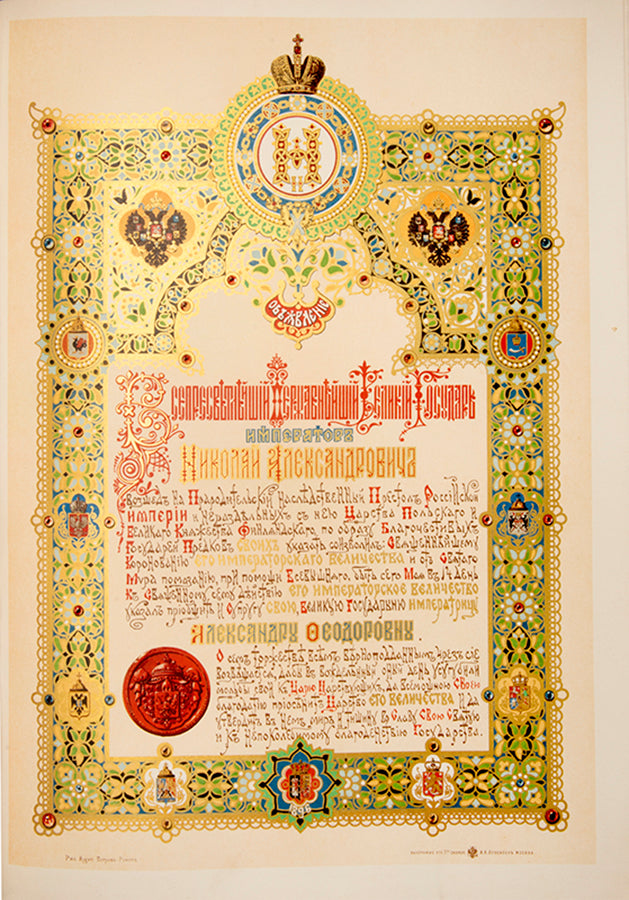 Объявленіе
Всепресвѣтлѣйшій Державнѣйшій Великій Государь
Императоръ
Николай Александровичъ
Вошедъ на Прародительскій Наслѣдственный Престолъ Россійской
Имперіи и нераздѣльныхъ съ нею Царства Польскаго и
Великаго Княжества Финляндскаго по образу Благочестивыхъ
Государей Предковъ своихъ указать соизволилъ: Священнѣйшему
Коронованію его императорскаго величества и отъ Святаго
Мѵра помазанію, при помощи Всевышняго, быть сего Мая въ 14 день
къ Священному сему дѣйствію его императорское величество
указалъ пріобщить и Супругу свою, великую государыню императрицу
Александру Ѳеодоровну.
О семъ торжествѣ всѣмъ вѣрноподданнымъ чрезъ сіе
возвѣщается, дабы въ вожделѣнный оный день усугубили
мольбы свои къ Царю Царствующихъ, да всемощною Своею
благодатію пріосѣнитъ Царство его величества и да
утвердитъ въ немъ миръ и тишину во славу Свою Святую
и къ непоколебимому благоденствію Государства.
1896
Москва